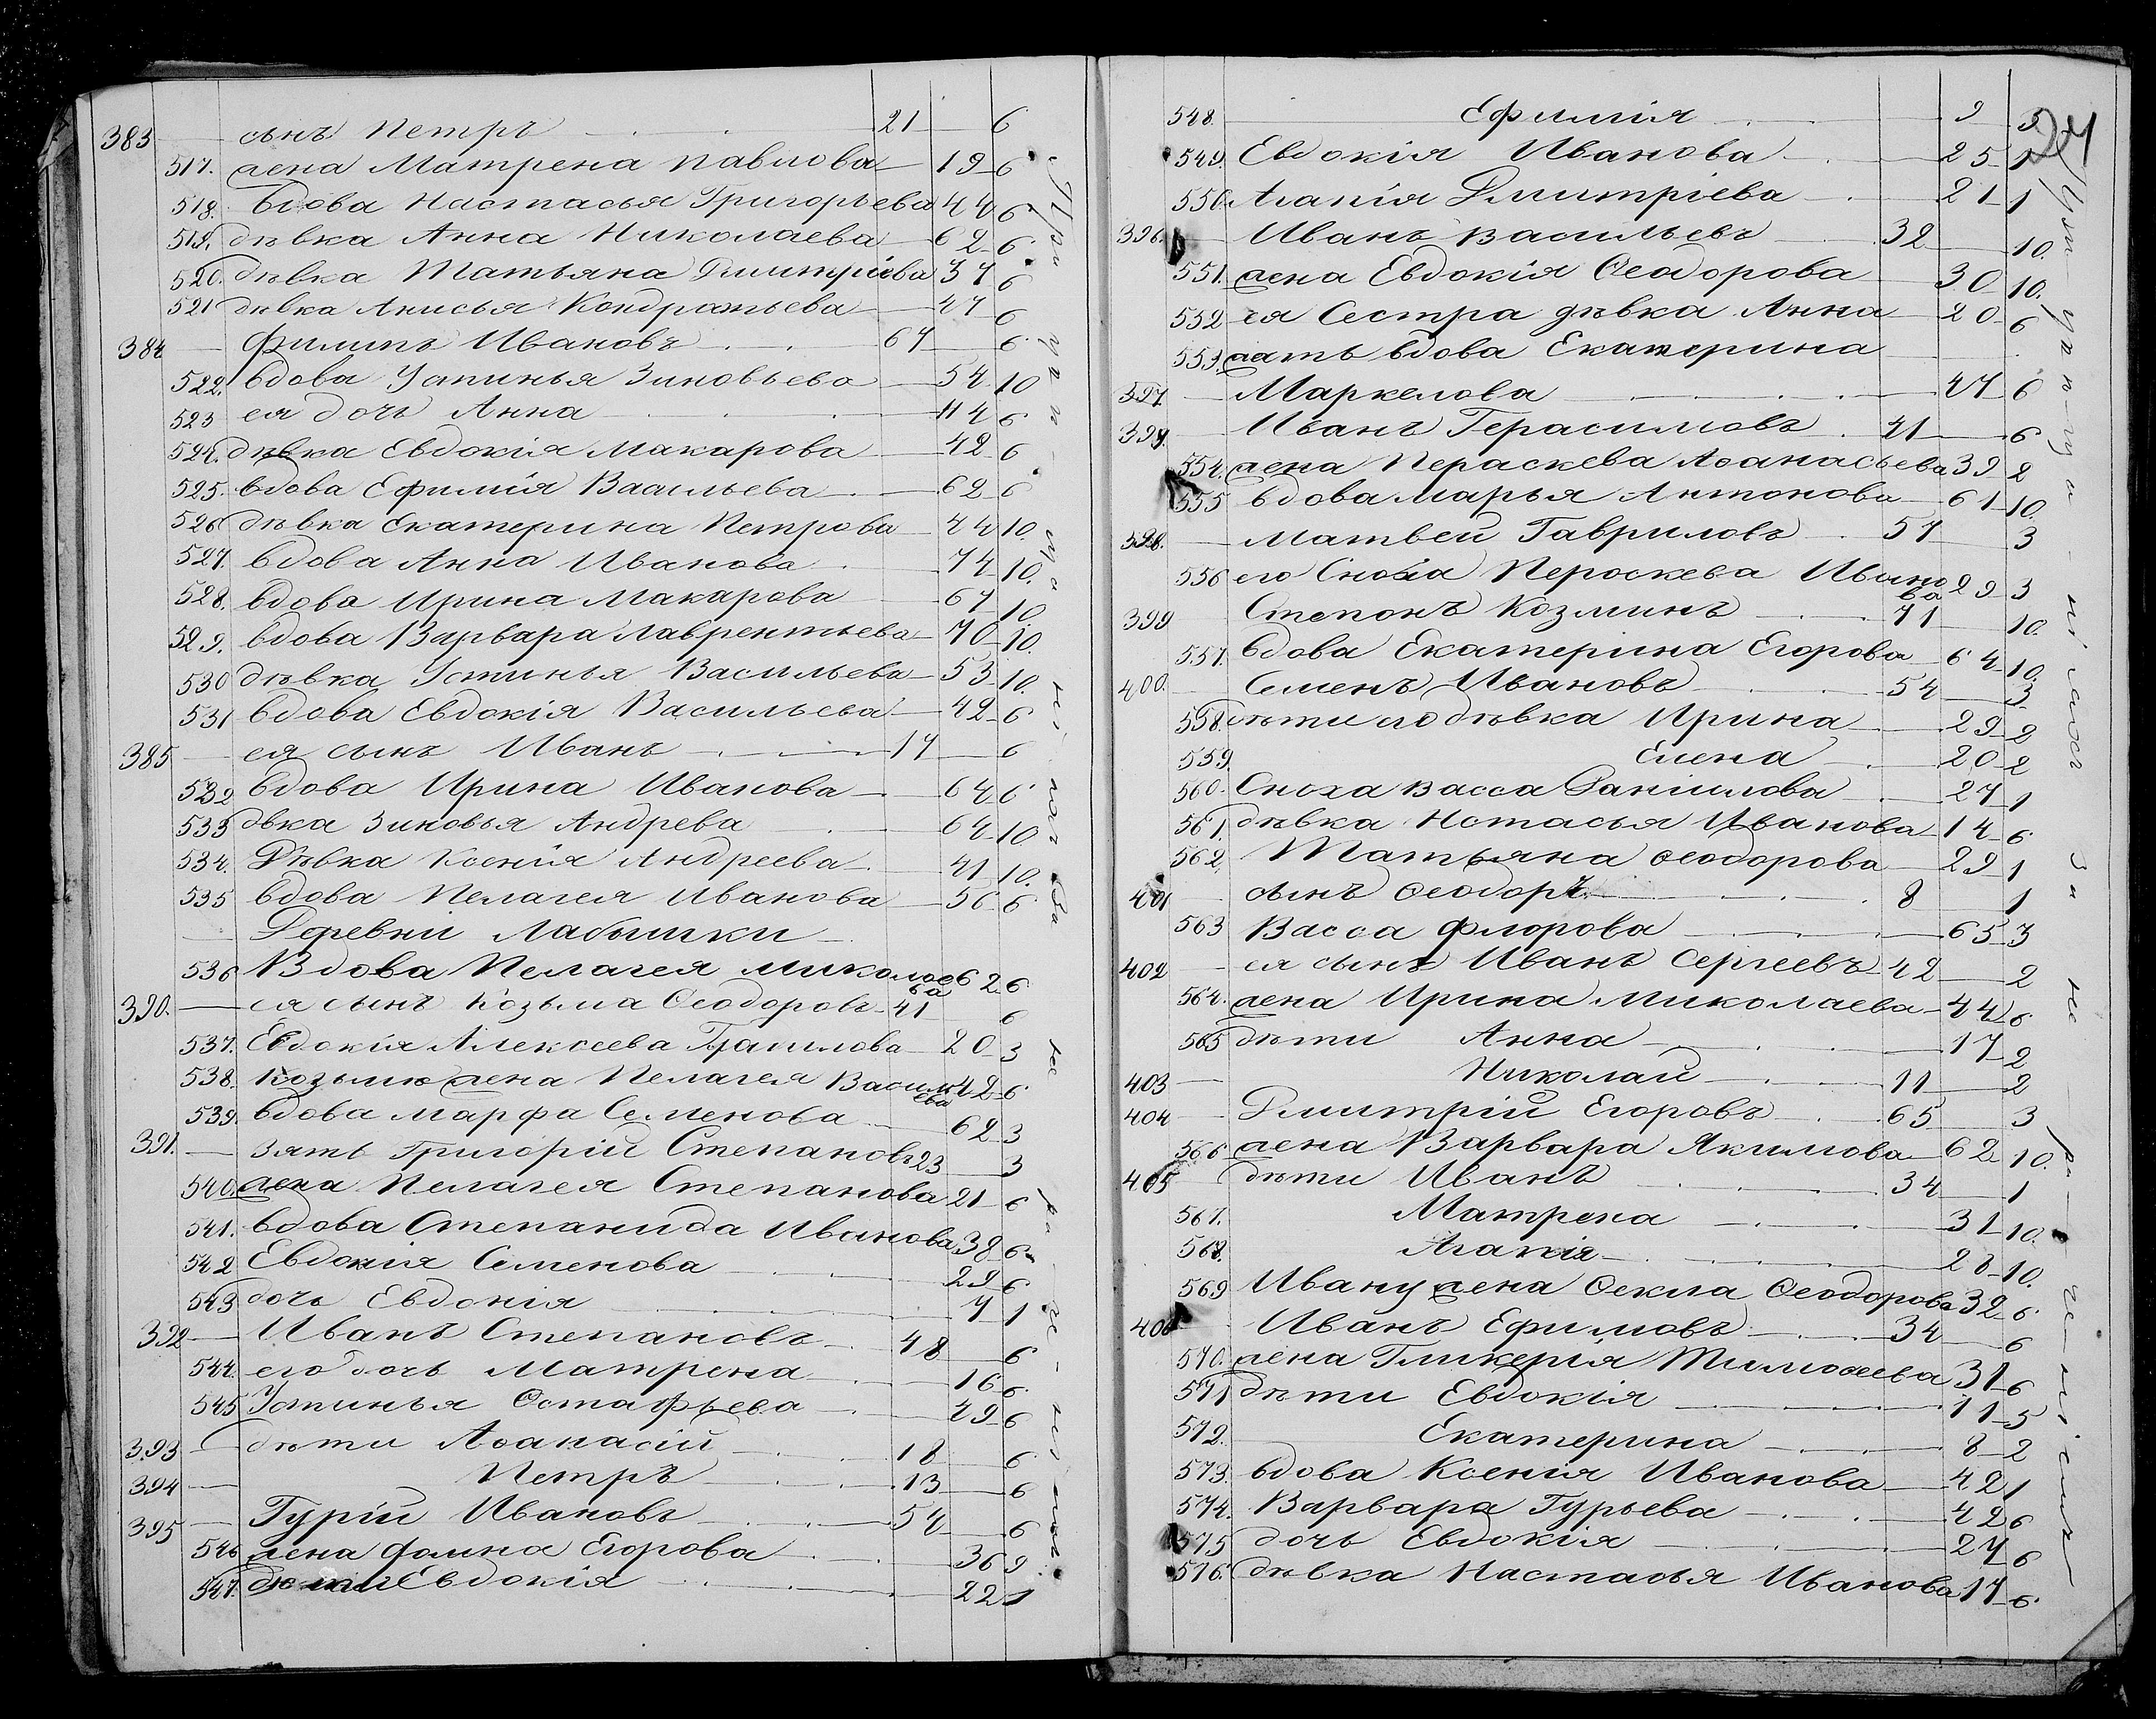 383 — сынъ Петръ 21 — 6
517. жена Матрена Павлова — 19 — 6
518. вдова Настасья Григорьева 44 6
519. дѣвка Анна Николаева — 62 6
520. дѣвка Татьяна Дмитріева 37 6
521 дѣвка Анисья Кондратьева — 47 6
384 — Филипъ Ивановъ 67 — 6
522. вдова Устинья Зиновьева — 54 10
523 ея дочь Анна 6
524. дѣвка Евдокія Макарова — 42 6
525. вдова Ефимія Васильева — 62 6
526 дѣвка Екатерина Петрова — 44 10.
527. вдова Анна Иванова 74 10.
528. вдова Ирина Макарова 67 10.
529. вдова Варвара Лаврентьева 70 10.
530 дѣвка Устинья Васильева — 53 10.
531 вдова Евдокія Васильева — 42 6
385 — ея сынъ Иванъ — 17 — 6
532 вдова Ирина Иванова — 64 6
533 двка Зиновья Андрева 64 10
534. Дѣвка Ксенія Андреева 41 10.
535 вдова Пелагея Иванова — 56 6
— Деревни Лабышки —
536 Вдова Пелагея Миколаева 62 6
390. — ея сынъ Козьма Ѳеодоровъ 41 6
537. Евдокія Алексеева — 20 3
538. Козьмы жена Пелагея Василиева 42 6
539. вдова Марфа Семенова 62 3
391. — зять Григорій Степановъ 23 — 3
540. жена Пелагея Степанова 21 6
541. вдова Степанида Иванова 38 6
542 Евдокія Семенова 29 6
543 дочь Евдокія 7 1
392 — Иванъ Степановъ 48 — 6
544. его дочь Матрена 16 6
545 Устинья Остафьева 49 6
393 — дѣти Аѳанасій 18 — 6
394 — Петръ 13 — 6
395 — Гурій Ивановъ 54 — 6
546 жена Фаина Егорова 36 9
547. дѣти Евдокія 22 1
548. Ефимія 9 5
549. Евдокія Иванова — 25 1
550. Агапія Дмитріева — 21 1
396. — Иванъ Васильевъ 32 — 10.
551. жена Евдокія Ѳеодорова 30 10.
552 ея Сестра дѣвка Анна 20 6
553 мать вдова Екатерина
397 — Маркелова 47 6
399. Иванъ Герасимовъ 41 — 6
554. жена Пераскева Аѳанасьева 39 2
555 вдова Марья Антонова 61 10.
398. — Матвей Гавриловъ 57 — 3
556 его Сноха Пероскева Иванова 29 3
399 Степонъ Козминъ 71 10.
557. вдова Екатерина Егорова 64 10.
400. — Семенъ Ивановъ 54 — 3
558. дѣти его дѣвка Ирина 29 2
559. Елена 20 2
560. Сноха Васса Даніилова 27 1
561. дѣвка Нотасья Иванова 14 6
562. Татьяна Ѳеодорова — 29 1
401 сынъ Ѳеодоръ 8 1
563 Васса Флорова 65 3
402 — ея сынъ Иванъ Сергеевъ 42 — 2
564. жена Ирина Миколаева 44 6
565 дѣти Анна 17 2
403 — Николай 11 — 2
404 — Дмитрій Егоровъ 65 3
566 жена Варвара Якимова 62 10.
405 дѣти Иванъ 34 — 1
567. Матрена 31 10.
568. Агапія 28 10.
569 Ивану жена Ѳекла Ѳеодорова 32 6
406 Иванъ Ефимовъ 34 — 6
570. жена Гликерія Тимоѳеева 31 6
571 дѣти Евдокія 11 5
572. Екатерина 8 2
573. вдова Ксенія Иванова 42 1
574. Варвара Гурьева 42 6
575 дочь Евдокія 27 6
576. дѣвка Настасья Иванова 17 6